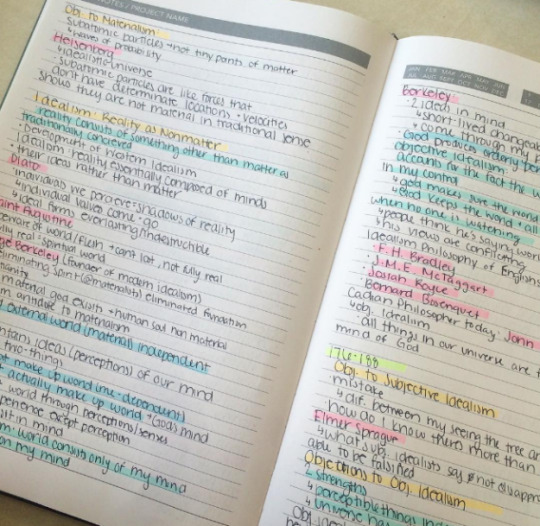 NOTES / PROJECT NAME
Obj. to Materialism
subatomic particles → not tiny parts of matter
↳ waves of probability
Heisenberg
↳ idealistic universe
· subatomic particles are like forces that
don't have determinate locations + velocities
shows they are not material in traditional sense
Idealism: Reality as Nonmatter
reality consists of something other than matter as
traditionally concieved
· Development of Western Idealism
· idealism: reality essentially composed of minds
+ their ideas rather than matter
Plato
· individuals we perceive = shadows of reality
↳ individual values come + go
↳ ideal forms everlasting/indestructible
Saint Augustine
world/flesh → can't last, not fully real
real = spiritual world
Berkeley (founder of modern idealism)
eliminating spirit (@materialists) eliminated foundation
material god exists + human soul non material
an antidote to materialism
external world (material) independent
ideas (perceptions) of our mind
make up world (me-dependent)
actually make up world → God's mind
world through perceptions/senses
experience except perception
in mind
world consists only of my mind
my mind
JAN FEB MAR APR MAY JUN
JUL AUG SEPT OCT NOV DEC
Berkeley:
· 2 ideas in mind
↳ short-lived changeable
↳ come through my
· God produces
objective idealism:
accounts for the fact the
in my control
↳ god makes sure the world
↳ God keeps the world + all
when no one is listening
↳ people think he's saying
↳ his views are conflicting
Idealism Philosophy of English
· F.H. Bradley
· J.M.E. McTaggart
· Josiah Royce
· Bernard Bosanquet
Philosopher today: John
↳ obj. idealism
all things in our universe are
mind of God
176-188
Obj. to Subjective Idealism
mistake
↳ dif. between my seeing the tree
how do I know there's more than
Elmer Sprague
↳ what subj. idealists say
able to be falsified
Objections to Obj. Idealism
strengths
↳ perceptible things
↳ universe